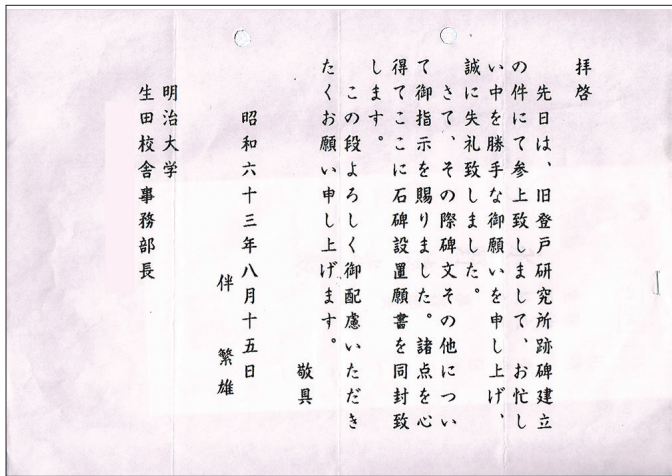 拝啓
先日は、旧登戸研究所跡碑建立
の件にて参上致しまして、お忙し
い中を勝手な御願いを申し上げ、
誠に失礼致しました。
さて、その際碑文その他につい
て御指示を賜りました。諸点を心
得てここに石碑設置願書を同封致
します。
この段よろしく御配慮いただき
たくお願い申し上げます。
敬具
昭和六十三年八月十五日
伴 繁雄
明治大学
生田校舎事務部長